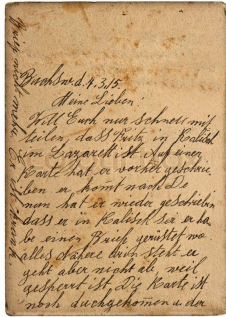 Bischw. d. 4.3.15
Meine Lieben!
Will Euch nur schnell mit
teilen, dass Fritz in Kalisch
im Lazarett ist. Auf einer
Karte hat er vorher geschrie
ben er komt nach De
nun hat er wieder geschrieben
dass er in Kalisch sei er ha
be einen Brief gerüstet wo
alles daherr drin steht er
geht aber nicht ab weil
gesperrt ist. Die Karte ist
noch durchgekom̄en u. der